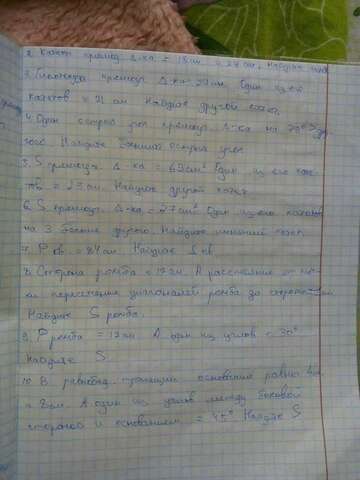 2. Катеты прямоуг. Δ-ка = 18 см и 24 см. Найдите
3. Площадь прямоуг. Δ-ка Один из его
катетов = 21 см Найдите другой катет.
4. Один острый угол прямоуг. Δ-ка на
Найдите больший острый угол
5. S прямоуг. Δ-ка = см² Один из его кате
тов = 23 см. Найдите другой катет
6. S прямоуг. Δ-ка = 27 см² Один из его катетов
на 3 больше другого. Найдите меньший катет
7. P кв. = 84 см. Найдите S кв.
8. Сторона ромба = 17 см. А расстояние от то
ки пересечения диагоналей ромба до стороны
Найдите S ромба.
9. P ромба = 12 см. А один из углов = 30°
Найдите S
10. В равнобед. трапеции основания равны
и 8 см. А один из углов между боковой
стороной и основанием = 45° Найдите S